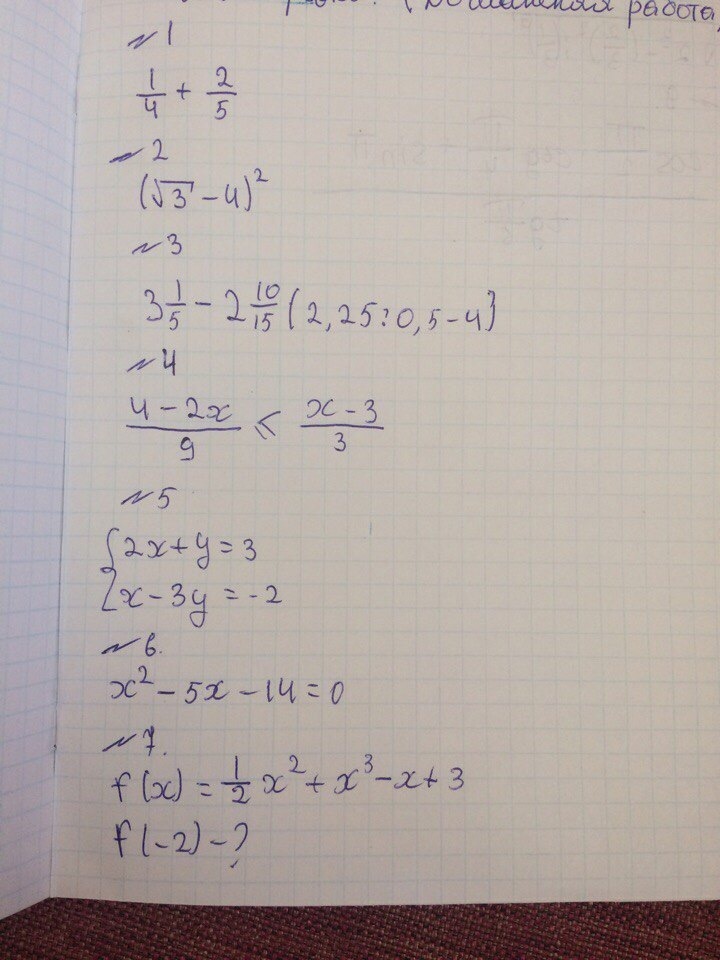 (Домашняя работа,
№1
1/4 + 2/5
№2
(√3 - 4)²
№3
3 1/5 - 2 10/15 (2,25:0,5-4)
№4
(4 - 2x)/9 ≤ (x - 3)/3
№5
{2x+y=3
x-3y=-2
№6.
x² - 5x - 14 = 0
№7.
f(x) = 1/2 x² + x³ - x + 3
f(-2) - ?